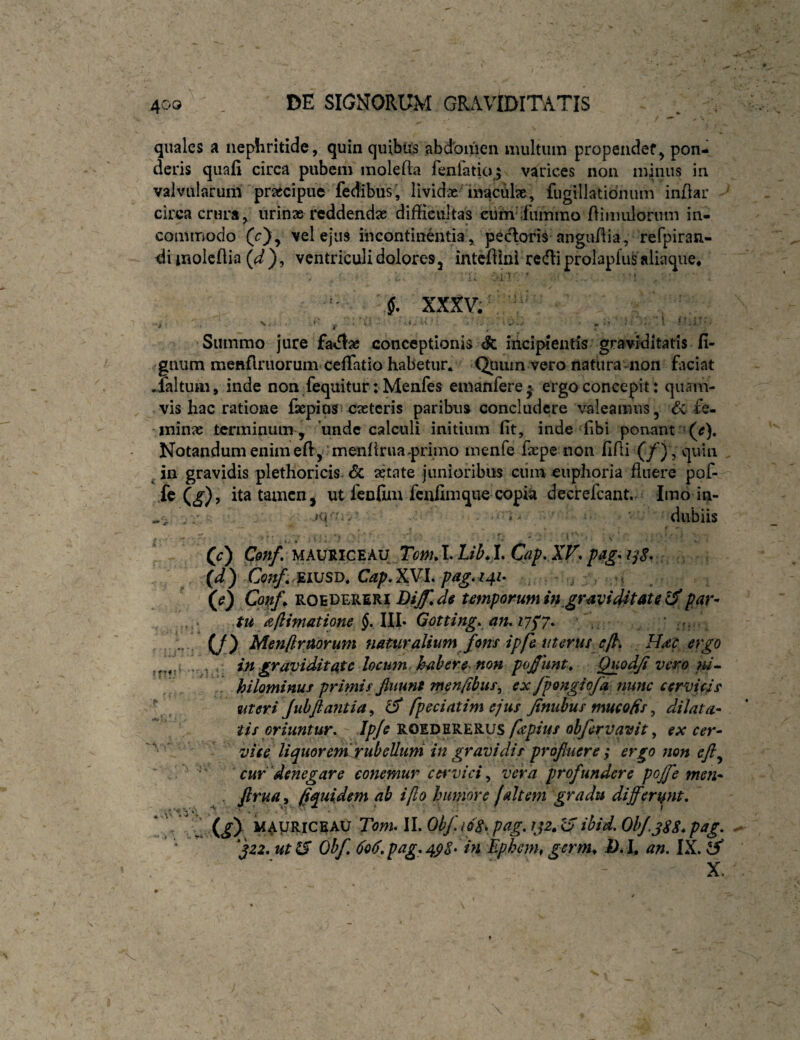 400 DE SIGNORUM GRAVIDITATIS
quales a nephritide, quin quibus abdomen multum propendet, pon-
deris quaſi circa pubem moleſta ſenſatio; varices non minus in
valvularum præcipue ſedibus, lividæ maculæ, ſugillationum inſtar
circa crura, urinæ reddendæ difficultas cum ſummo ſtimulorum in-
commodo (c), vel ejus incontinentia, pectoris anguſtia, reſpiran-
di moleſtia (d), ventriculi dolores, inteſtini recti prolapſus aliaque.
§. XXXV.
Summo jure factæ conceptionis & incipientis graviditatis ſi-
gnum menſtruorum ceſſatio habetur. Quum vero natura non faciat
ſaltum, inde non ſequitur: Menſes emanſere; ergo concepit: quam-
vis hac ratione ſæpius cæteris paribus concludere valeamus, & fe-
minæ terminum, unde calculi initium fit, inde ſibi ponant (e).
Notandum enim eſt, menſtrua primo menſe ſæpe non ſiſti (f), quin
in gravidis plethoricis & ætate junioribus cum euphoria fluere poſ-
ſe (g), ita tamen, ut ſenſim ſenſimque copia decreſcant. Imo in-
dubiis
(c) Conf. MAURICEAU Tom. I. Lib. I. Cap. XV. pag. 138.
(d) Conf. EIUSD. Cap. XVI. pag. 141.
(e) Conf. ROEDERERI Diſſ. de temporum in graviditate & par-
tu æſtimatione §. III. Gotting. an. 1757.
(f) Menſtruorum naturalium fons ipſe uterus eſt. Hæc ergo
in graviditate locum habere non poſſunt. Quodſi vero ni-
hilominus primis fluunt menſibus, ex ſpongioſa nunc cervicis
uteri ſubſtantia, & ſpeciatim ejus ſinubus mucoſis, dilata-
tis oriuntur. Ipſe ROEDERERUS ſæpius obſervavit, ex cer-
vice liquorem rubellum in gravidis profluere; ergo non eſt,
cur denegare conemur cervici, vera profundere poſſe men-
ſtrua, ſiquidem ab iſto humore ſaltem gradu differunt.
(g) MAURICEAU Tom. II. Obſ. 168. pag. 132. & ibid. Obſ. 388. pag.
322. ut & Obſ. 606. pag. 498. in Ephem. germ. D. I. an. IX. &
X.